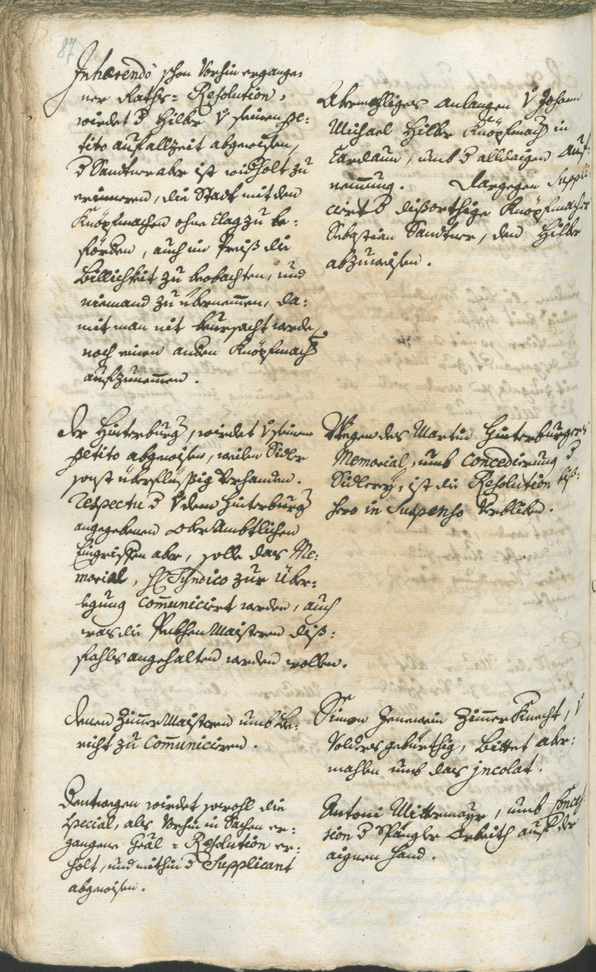 87
Inhærendo schon Vorhin ergange:
ner Raths= Resolution,
wirdet d Hilbe V seinem pe:
tito auf allzeit abgewisen,
d Sandtner aber ist widholt zu
erinneren, die Statt mit den
Knöpfmachen ohne Clag zu be:
förden, auch in Preiß die
Billichkeit zu beobachten, und
niemand zu übernemmen, da:
mit man nit verursacht werde,
noch einen anden Knöpfmach
aufzunemmen.
Abermahliges anlangen V Johann
Michael Hilbe Knöpfmach in
Cardaun, umb d alldaigen Auf:
nemmung. Dargegen Suppli:
cirt d dißorthige Knöpfmacher
Sebastian Sandtner, den Hilbe
abzuweisen.
Der Hinterburg, wirdet V seinem
petito abgewisen, weilen Sidler
sonst überflüssig Verhanden.
respectu d V dem Hinterburg
angegebenen oberambtlichen
Eingriffen aber, solle das Me:
morial, H Syndico zur Über:
legung com̄uniciret werden, auch
was die Maisteren diß:
fahls angehalten werden wollen.
Wegen des Martin Hinterburgers
Memorial, umb Concedierung d
Sidlerey, ist die Resolution biß:
hero in Suspenso Verbliben.
Denen Zimer Maistern umb Be:
richt zu Com̄uniciren.
Simon Jenewein Zimer Knecht, V
Volders gebürthig, bittet aber:
mahlen umb das jncolat.
Dentwegen wirdet sowohl die
special, als Vorhin in Sachen er:
gangene Gräl = Resolution er:
holt, und mithin d Supplicant
abgewisen.
Antoni Mittermayr, umb Conces
sion d Spängler Arbeith auf der
aignen Hand.